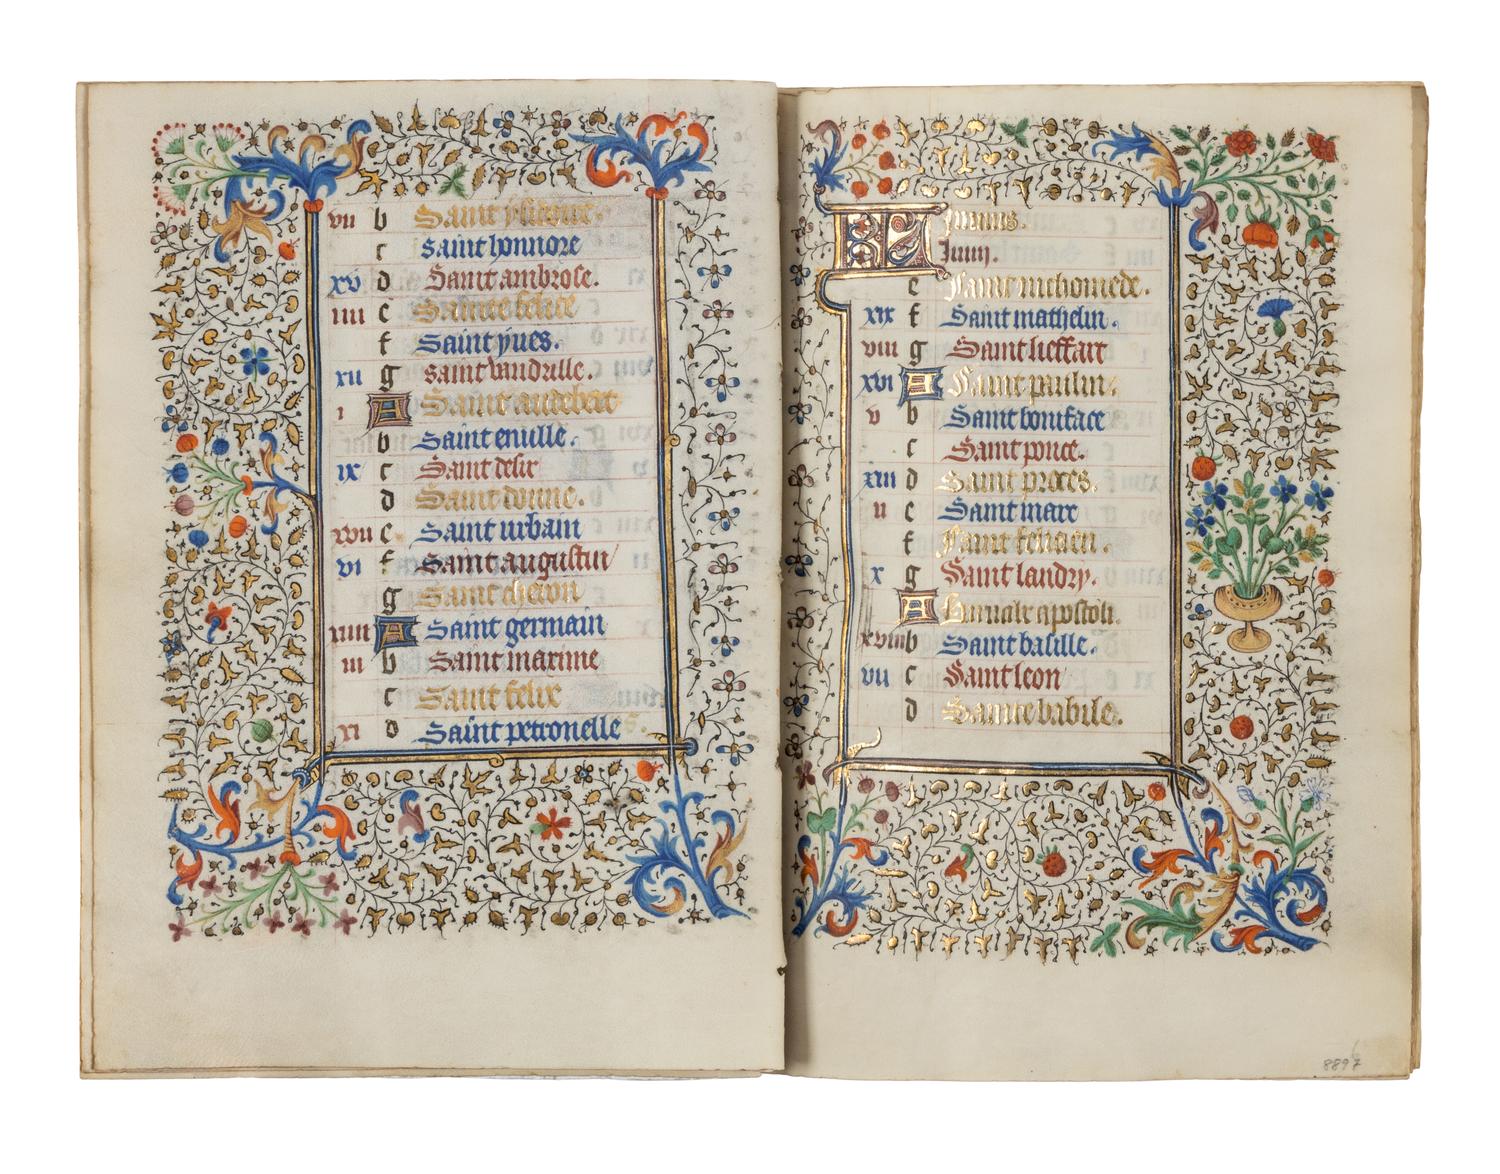 vii b Saint
c Saint honnore
xv d Saint ambrose.
iiii e Saincte felice
f Saint yues.
xii g saint vandrille.
i A Saint audebert
b Saint emille.
ix c Saint desir
d Saint donne.
xvii e Saint urbain
vi f Saint augustin
g Saint cheron
xiiii A Saint germain
iii b Saint maxime
c Saint felix
xi d Saint petronelle
KL Junius.
Juing.
e Saint nichomede.
xix f Saint mathelin.
viii g Saint lieffart
xvi A Saint paulin.
v b Saint boniface
c Saint ponce.
xiii d Saint proces.
ii e Saint marc
f Saint felicien.
x g Saint landry.
A Barnabe apostoli.
xviii b Saint basille.
vii c Saint leon
d Sainte babile.
8897